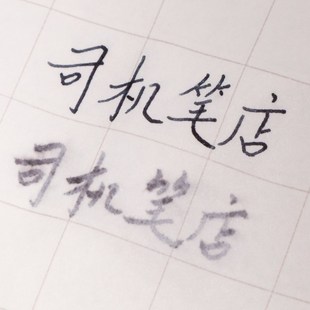 司机笔店
司机笔店